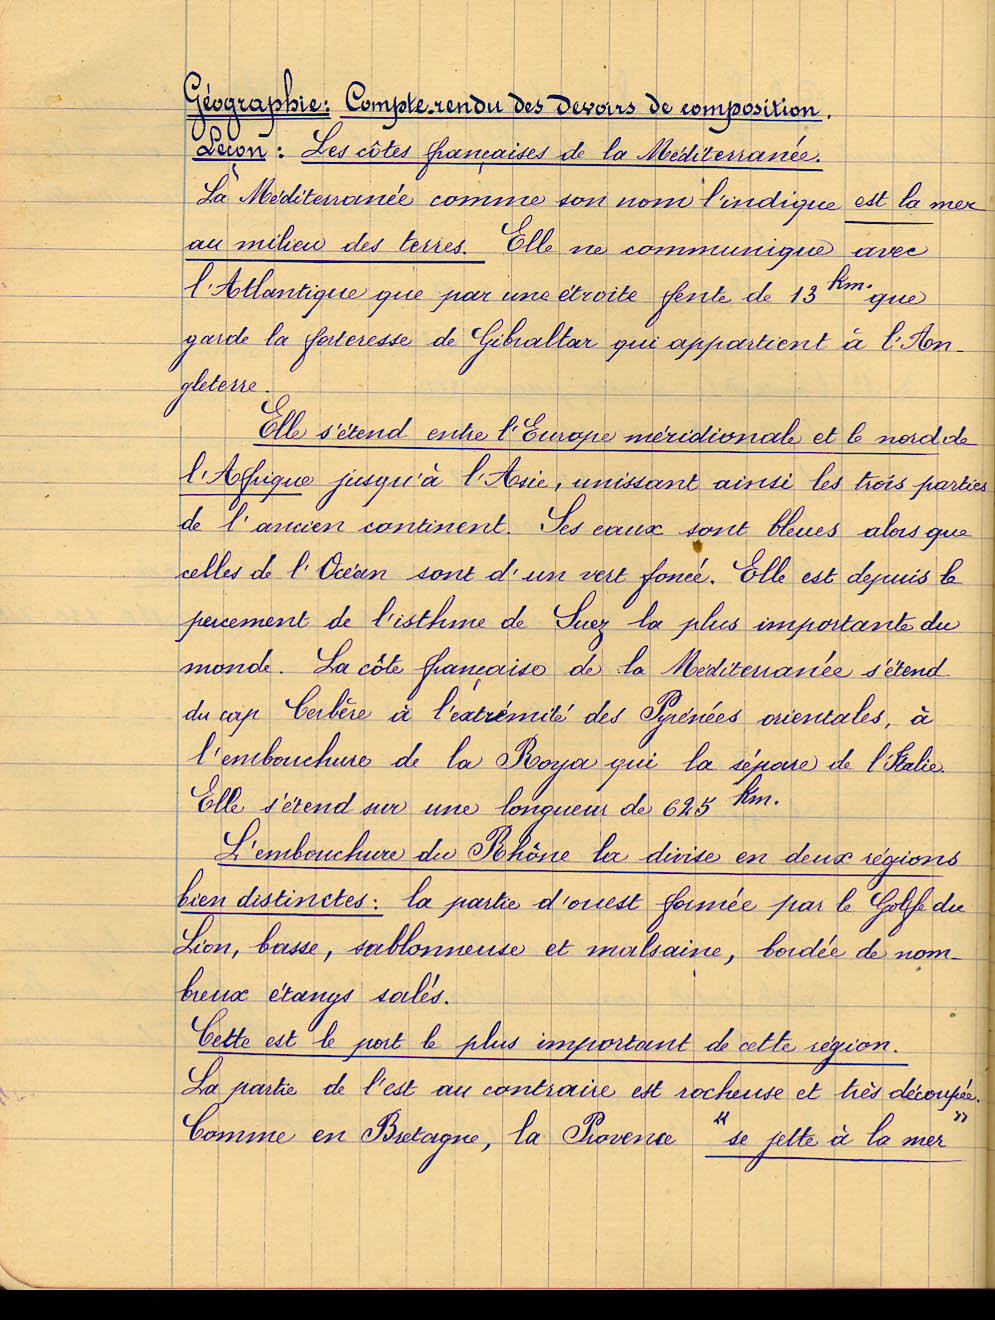 Géographie: Compte-rendu des devoirs de composition.
Leçon: Les côtes françaises de la Méditerranée.
La Méditerranée comme son nom l'indique est la mer
au milieu des terres. Elle ne communique avec
l'Atlantique que par une étroite fente de 13 km. que
garde la forteresse de Gibraltar qui appartient à l'An-
gleterre.
Elle s'étend entre l'Europe méridionale et le nord de
l'Afrique jusqu'à l'Asie, unissant ainsi les trois parties
de l'ancien continent. Ses eaux sont bleues alors que
celles de l'Océan sont d'un vert foncé. Elle est depuis le
percement de l'isthme de Suez la plus importante du
monde. La côte française de la Méditerranée s'étend
du cap Cerbère à l'extrémité des Pyrénées orientales, à
l'embouchure de la Roya qui la sépare de l'Italie.
Elle s'étend sur une longueur de 625 km.
L'embouchure du Rhône la divise en deux régions
bien distinctes: la partie d'ouest formée par le Golfe du
Lion, basse, sablonneuse et malsaine, bordée de nom-
breux étangs salés.
Cette est le port le plus important de cette région.
La partie de l'est au contraire est rocheuse et très découpée.
Comme en Bretagne, la Provence "se jette à la mer"